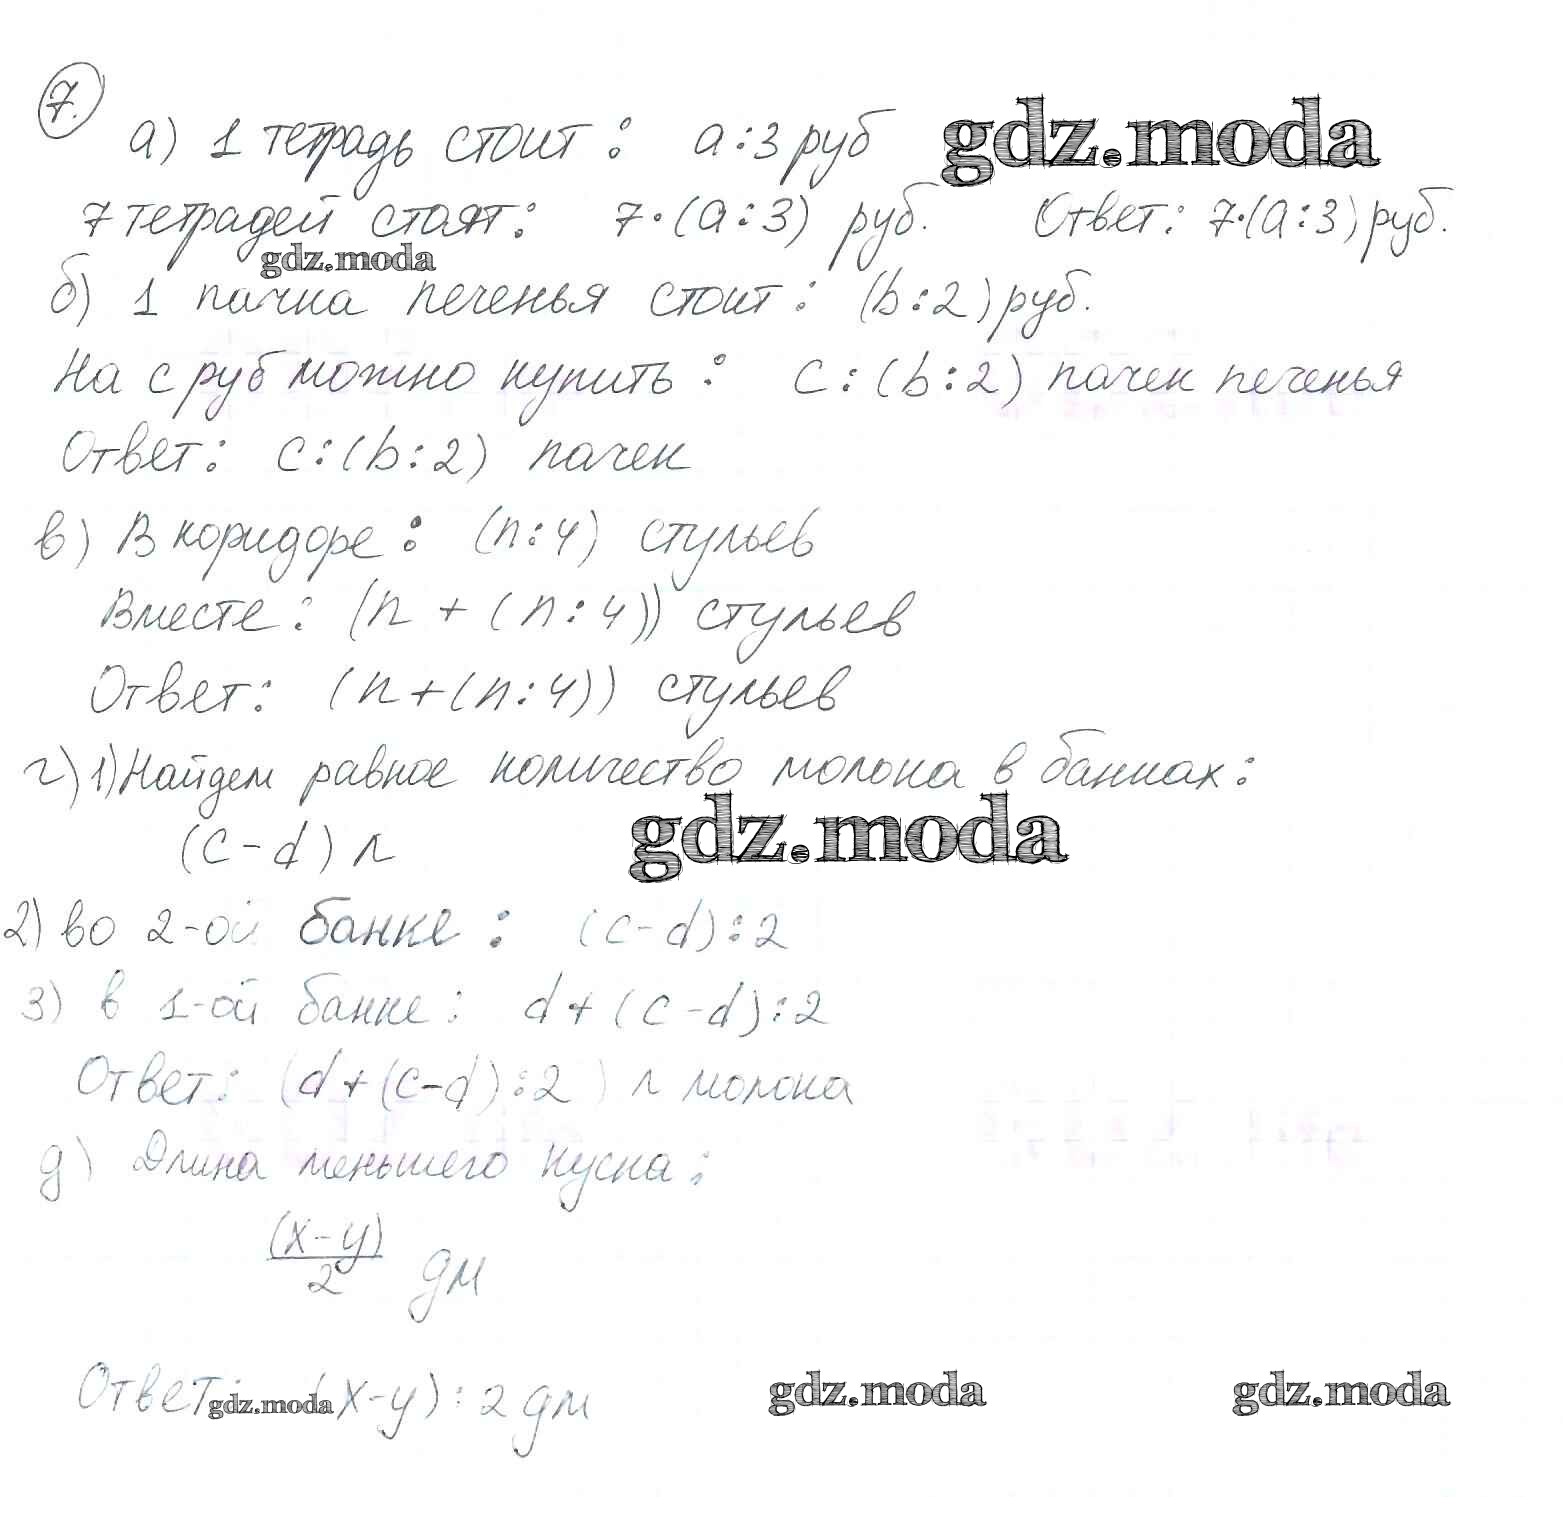 7.
а) 1 тетрадь стоит: a:3 руб
gdz.moda
7 тетрадей стоят: 7·(a:3) руб. Ответ: 7·(a:3) руб.
gdz.moda
б) 1 пачка печенья стоит: (b:2) руб.
На с руб можно купить: c:(b:2) пачек печенья
Ответ: c:(b:2) пачек
в) В коридоре: (n:4) стульев
Вместе: (n + (n:4)) стульев
Ответ: (n+(n:4)) стульев
г) 1) Найдем равное количество молока в банках:
(c-d) л
gdz.moda
2) во 2-ой банке: (c-d):2
3) в 1-ой банке: d+(c-d):2
Ответ: (d+(c-d):2) л молока
д) Длина меньшего куска:
(x-y)
2
дм
Ответ: (x-y):2 дм
gdz.moda
gdz.moda
gdz.moda